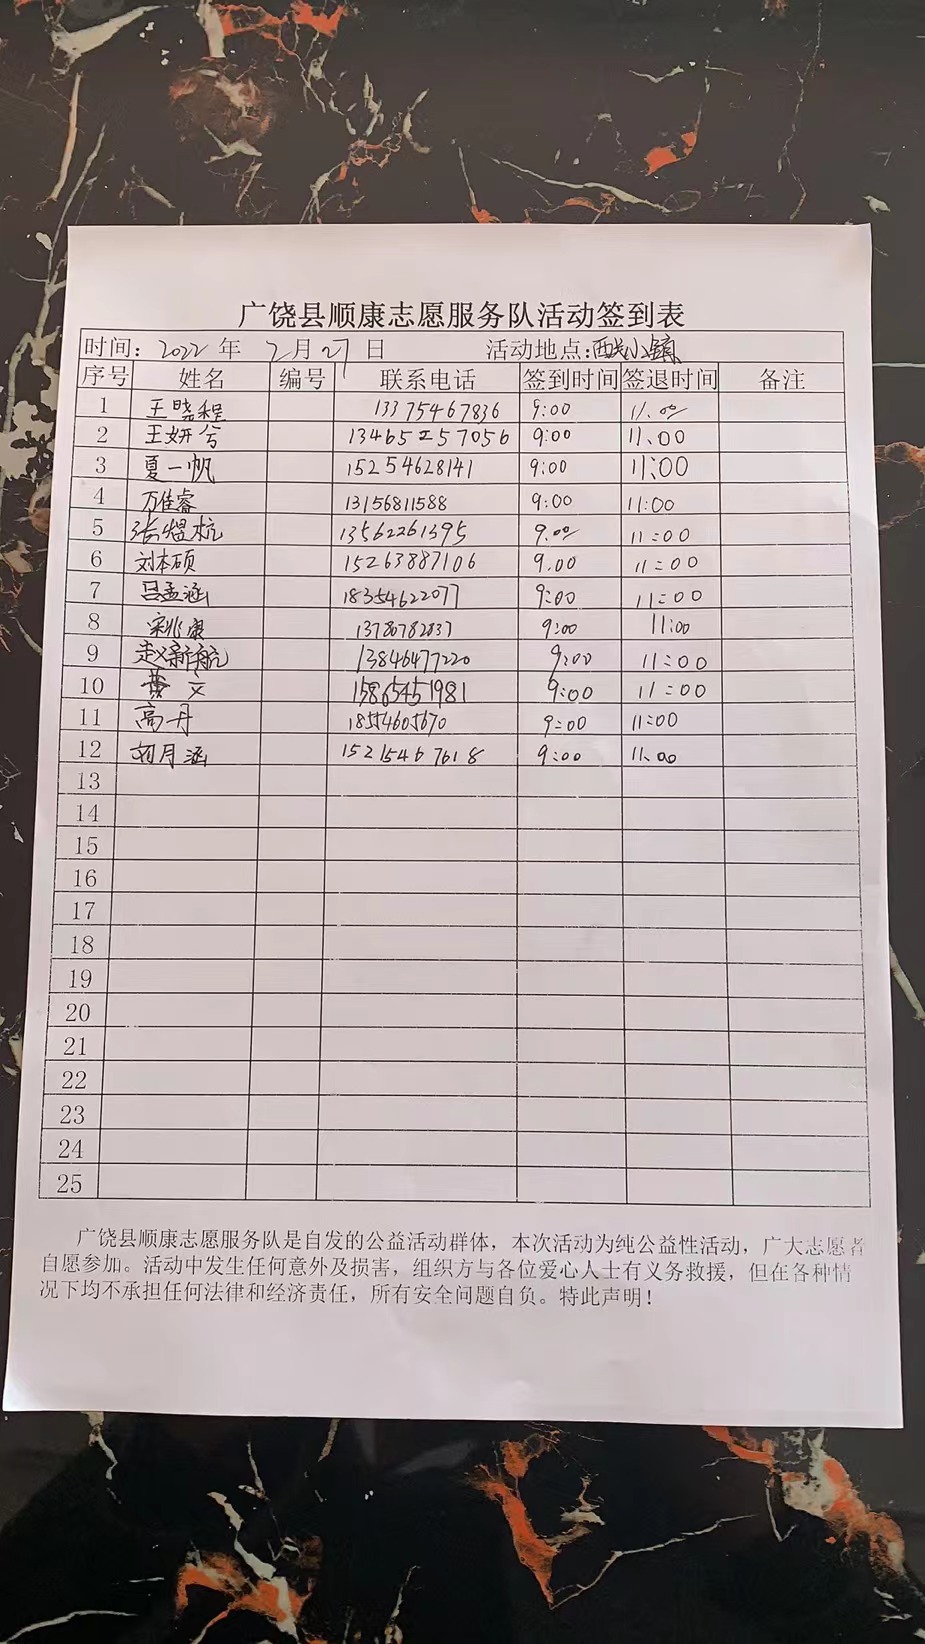 广饶县顺康志愿服务队活动签到表
时间：2022 年 2月27日 活动地点:西关小镇
序号 姓名 编号 联系电话 签到时间 签退时间 备注
1 王晓程 13375467836 9:00 11:00
2 王妍兮 13465257056 9:00 11:00
3 夏一帆 15254628141 9:00 11:00
4 万佳睿 13156811588 9:00 11:00
5 张煜杭 13562261395 9:00 11:00
6 刘本硕 15263887106 9:00 11:00
7 吕孟涵 18354622077 9:00 11:00
8 宋兆康 13780782037 9:00 11:00
9 赵新航 13846477220 9:00 11:00
10 文 15865451981 9:00 11:00
11 高丹 18554605670 9:00 11:00
12 刘月涵 15215467618 9:00 11:00
13
14
15
16
17
18
19
20
21
22
23
24
25
广饶县顺康志愿服务队是自发的公益活动群体，本次活动为纯公益性活动，广大志愿者
自愿参加。活动中发生任何意外及损害，组织方与各位爱心人士有义务救援，但在各种情
况下均不承担任何法律和经济责任，所有安全问题自负。特此声明！